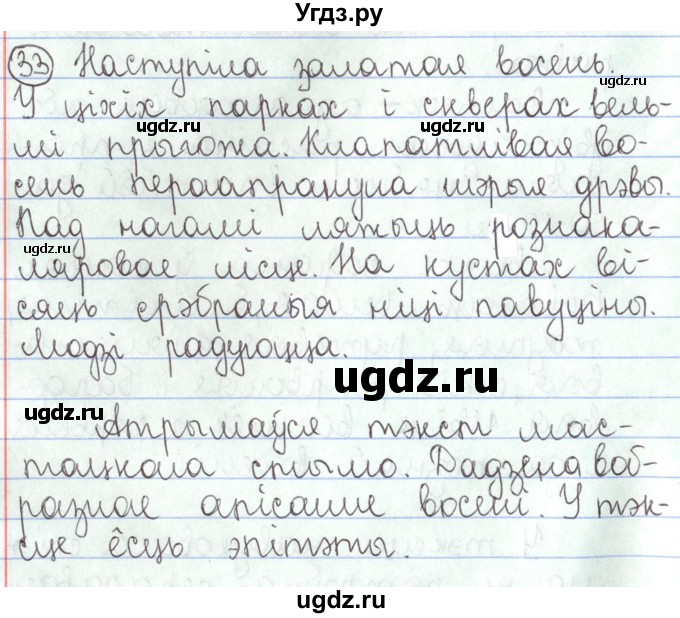 Угдз.ру
33 Наступіла залатая восень.
У ціхіх парках і скверах вель-
ugdz.ru
ugdz.ru
мі прыгожа. Клапатлівая во-
сень пераапранула шэрыя дрэвы.
Пад нагамі ляжыць рознака-
ugdz.ru
ляровае лісце. На кустах ві-
сяць срэбраныя ніці павуціны.
Людзі радуюцца.
ugdz.ru
ugdz.ru
Атрымаўся тэкст мас-
тацкага стылю. Дадзена воб-
разнае апісанне восені. У тэк-
ugdz.ru
ugdz.ru
сце ёсць эпітэты.
ugdz.ru